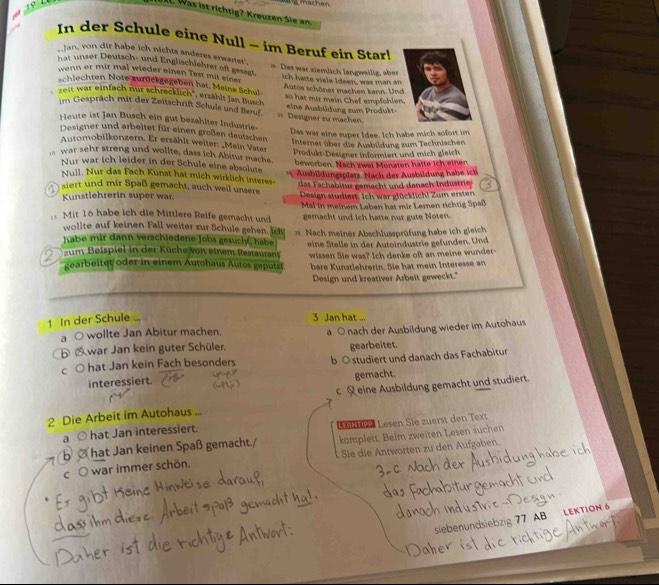 Was ist richtig? Kreuzen Sie an.
machen
In der Schule eine Null – im Beruf ein Star!
„Jan, von dir habe ich nichts anderes erwartet',
hat unser Deutsch- und Englischlehrer oft gesagt,
wenn er mir mal wieder einen Test mit einer
schlechten Note zurückgegeben hat. Meine Schul-
zeit war einfach nur schrecklich", erzählt Jan Busch
im Gespräch mit der Zeitschrift Schule und Beruf.
Heute ist Jan Busch ein gut bezahlter Industrie-
Designer und arbeitet für einen großen deutschen
Automobilkonzern. Er erzählt weiter: „Mein Vater
war sehr streng und wollte, dass ich Abitur mache.
Nur war ich leider in der Schule eine absolute
Null. Nur das Fach Kunst hat mich wirklich interes-
siert und mir Spaß gemacht, auch weil unsere
Kunstlehrerin super war.
Mit 16 habe ich die Mittlere Reife gemacht und
wollte auf keinen Fall weiter zur Schule gehen. Ich
habe mir dann verschiedene Jobs gesucht, habe
zum Beispiel in der Küche von einem Restaurant
gearbeitet oder in einem Autohaus Autos geputzt.
Das war ziemlich langweilig, aber
ich hatte viele Ideen, was man an
Autos schöner machen kann. Und
so hat mir mein Chef empfohlen,
eine Ausbildung zum Produkt-
Designer zu machen.
Das war eine super Idee. Ich habe mich sofort im
Internet über die Ausbildung zum Technischen
Produkt-Designer informiert und mich gleich
beworben. Nach zwei Monaten hatte ich einen
Ausbildungsplatz. Nach der Ausbildung habe ich
das Fachabitur gemacht und danach Industrie-
Design studiert. Ich war glücklich! Zum ersten
Mal in meinem Leben hat mir Lernen richtig Spaß
gemacht und ich hatte nur gute Noten.
Nach meiner Abschlussprüfung habe ich gleich
eine Stelle in der Autoindustrie gefunden. Und
wissen Sie was? Ich denke oft an meine wunder-
bare Kunstlehrerin. Sie hat mein Interesse an
Design und kreativer Arbeit geweckt."
1 In der Schule ...
a ○ wollte Jan Abitur machen.
b ⊗ war Jan kein guter Schüler.
c ○ hat Jan kein Fach besonders
interessiert.
2 Die Arbeit im Autohaus ...
a ○ hat Jan interessiert.
b ⊗ hat Jan keinen Spaß gemacht.
c ○ war immer schön.
Es gibt keine Hinweise darauf,
dass ihm diese Arbeit spaß gemacht hat.
Daher ist die richtige Antwort:
3 Jan hat ...
a ○ nach der Ausbildung wieder im Autohaus
gearbeitet.
b ○ studiert und danach das Fachabitur
gemacht.
c ⊗ eine Ausbildung gemacht und studiert.
LERNTIPP Lesen Sie zuerst den Text
komplett. Beim zweiten Lesen suchen
Sie die Antworten zu den Aufgaben.
3.c Nach der Ausbildung habe ich
das Fachabitur gemacht und
danach industrie-Design.
Daher ist die richtige Antwort.
siebenundsiebzig 77 AB LEKTION 6